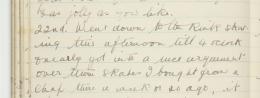 was jolly as you like.
22nd. Went down to the Rink skat-
ing this afternoon till 4 oclock
nearly got into a nice argument
over them skates I bought from a
chap this a week or so ago, it